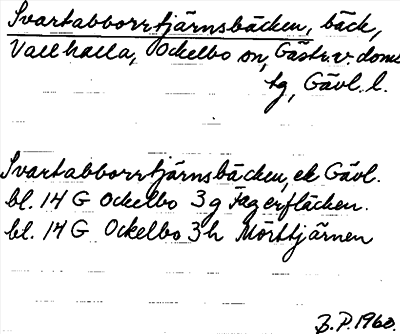 Svartabborrtjärnsbäcken, bäck,
Vallhalla, Ockelbo sn, Gästr. v. doms.
tg, Gävl. l.
Svartabborrtjärnsbäcken, ek Gävl.
bl. 14 G Ockelbo 3 g Fagerfläcken.
bl. 14 G Ockelbo 3 h Mörttjärnen
B.P. 1960.